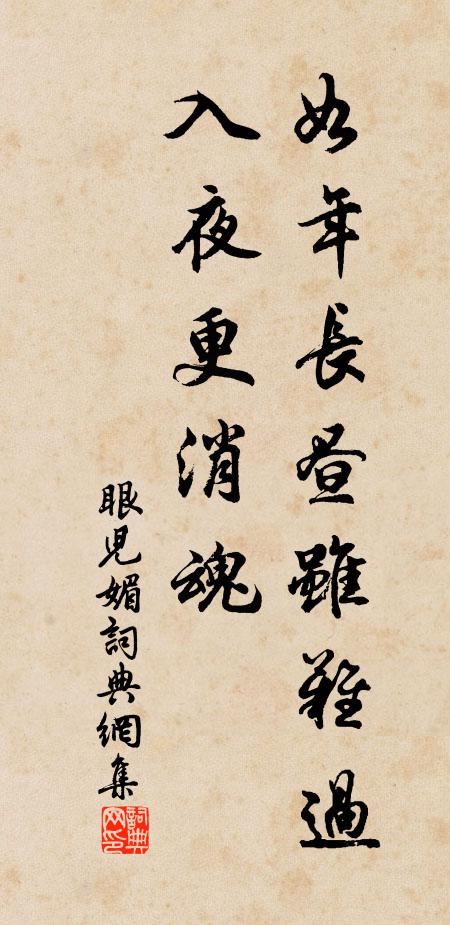 如年長昼雖難過
入夜更消魂
眼児媚詞典網集
詞典网印